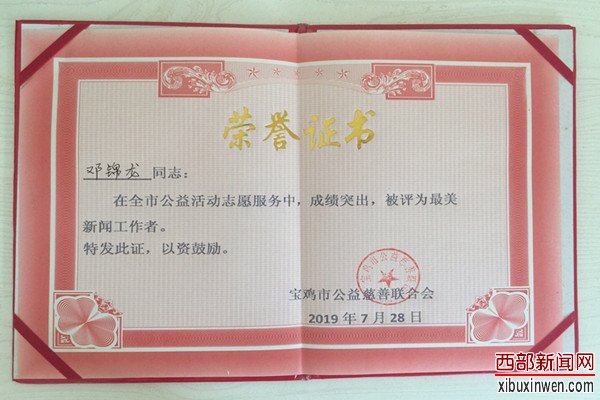 荣誉证书
邓锦龙 同志：
在全市公益活动志愿服务中，成绩突出，被评为最美
新闻工作者。
特发此证，以资鼓励。
宝鸡市公益慈善联合会
2019 年 7 月 28 日
西部新闻网
xibuxinwen.com